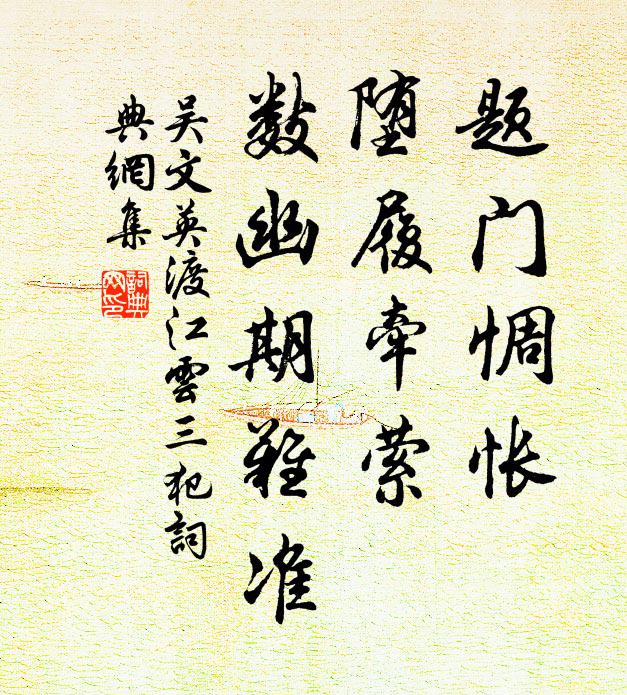 题门惆怅
堕履牵萦
数幽期难准
吴文英渡江雲三犯詞
典網集
詞典
网印